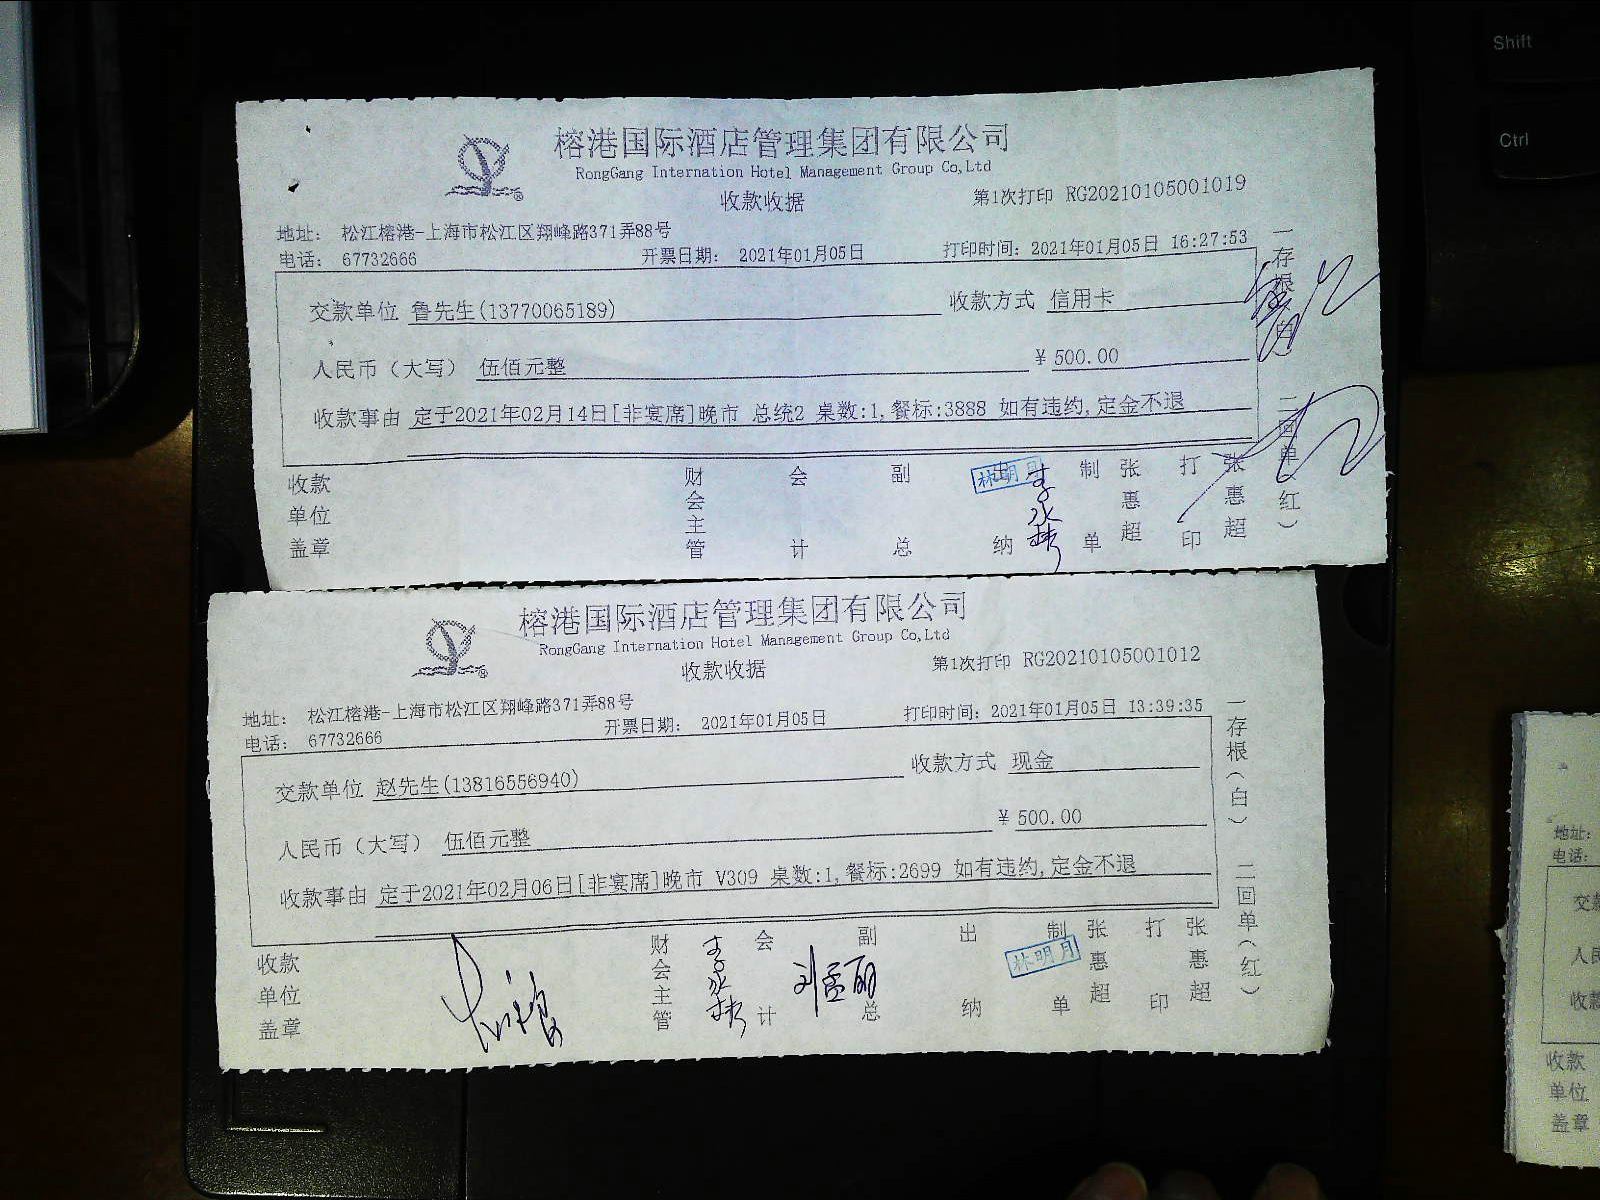 Shift
Ctrl
榕港国际酒店管理集团有限公司
RongGang Internation Hotel Management Group Co,Ltd
收款收据
第1次打印 RG20210105001019
地址： 松江榕港-上海市松江区翔峰路371弄88号
电话： 67732666
开票日期： 2021年01月05日
打印时间：2021年01月05日 16:27:53
交款单位 鲁先生(13770065189)
收款方式 信用卡
人民币（大写） 伍佰元整
￥500.00
收款事由 定于2021年02月14日[非宴席]晚市 总统2 桌数:1,餐标:3888 如有违约,定金不退
收款单位盖章
财会主管
会计
副总
纳
林明月
制单
张惠超
打印
张惠超
一存根（白）
二回单（红）
榕港国际酒店管理集团有限公司
RongGang Internation Hotel Management Group Co,Ltd
收款收据
第1次打印 RG20210105001012
地址： 松江榕港-上海市松江区翔峰路371弄88号
电话： 67732666
开票日期： 2021年01月05日
打印时间：2021年01月05日 13:39:35
交款单位 赵先生(13816556940)
收款方式 现金
人民币（大写） 伍佰元整
￥500.00
收款事由 定于2021年02月06日[非宴席]晚市 V309 桌数:1,餐标:2699 如有违约,定金不退
收款单位盖章
财会主管
会计
刘孟丽
副总
出纳
林明月
制单
张惠超
打印
张惠超
一存根（白）
二回单（红）
地址：
电话：
交
人
收
收款
单位
盖章